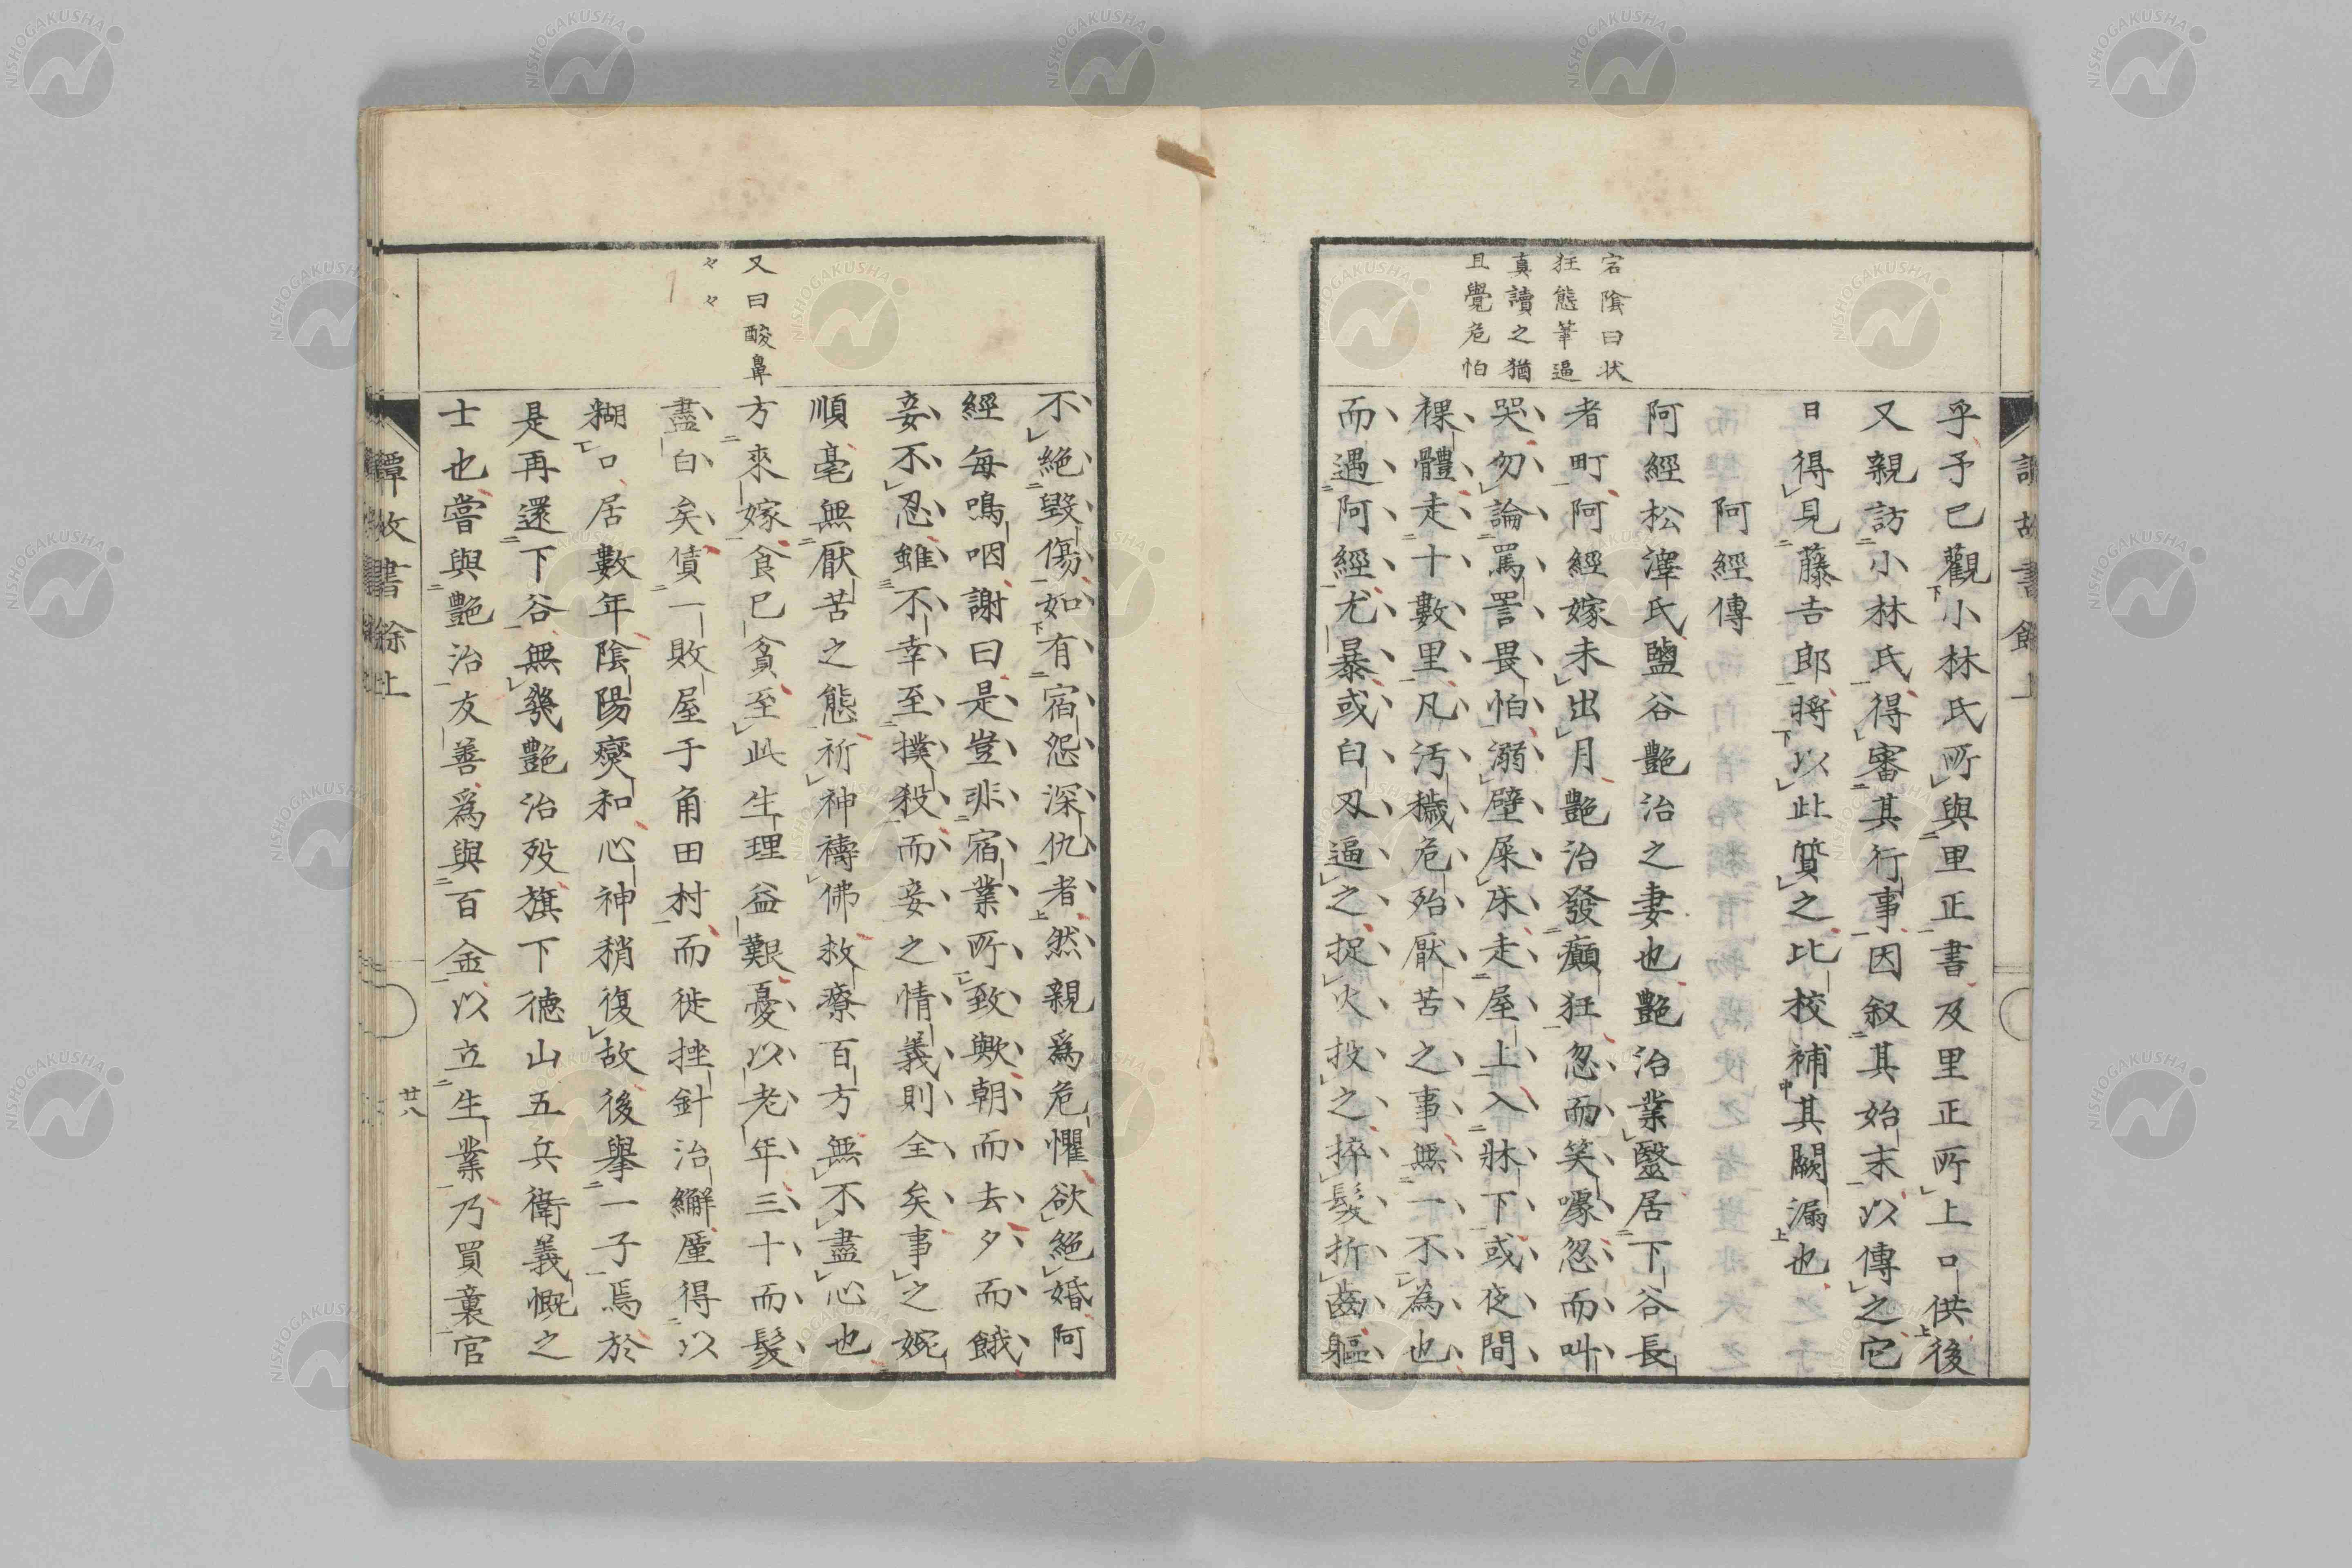 宕陰曰状
狂態筆逼
真讀之猶
且覺危怕
乎予已觀小林氏所與里正書及里正所上口供後
又親訪小林氏得審其行事因叙其始末以傳之它
日得見藤吉郎將以此質之比校補其闕漏也
阿經傳
阿經松澤氏鹽谷艷治之妻也艷治業醫居下谷長
者町阿經嫁未出月艷治發癲狂忽而笑噱忽而叫
哭勿論罵詈畏怕溺壁屎床走屋上入牀下或夜間
裸體走十數里凡汚穢危殆厭苦之事無一不為也
而遇阿經尤暴或白刃逼之捉火投之捽髮折齒軀
又曰酸鼻
々々
不絕毀傷如有宿怨深仇者然親爲危懼欲絕婚阿
經每鳴咽謝曰是豈非宿業所致歟朝而去夕而餓
妾不忍雖不幸至撲殺而妾之情義則全矣事之婉
順毫無厭苦之態祈神禱佛救療百方無不盡心也
方來嫁食已貧至此生理益艱憂以老年三十而髮
盡白矣債一敗屋于角田村而徙挫針治繲廑得以
糊口居數年陰陽燮和心神稍復故後擧一子焉於
是再還下谷無幾艷治歿旗下德山五兵衛義慨之
士也嘗與艷治友善爲與百金以立生業乃買稟官
譚故書餘上
廿八